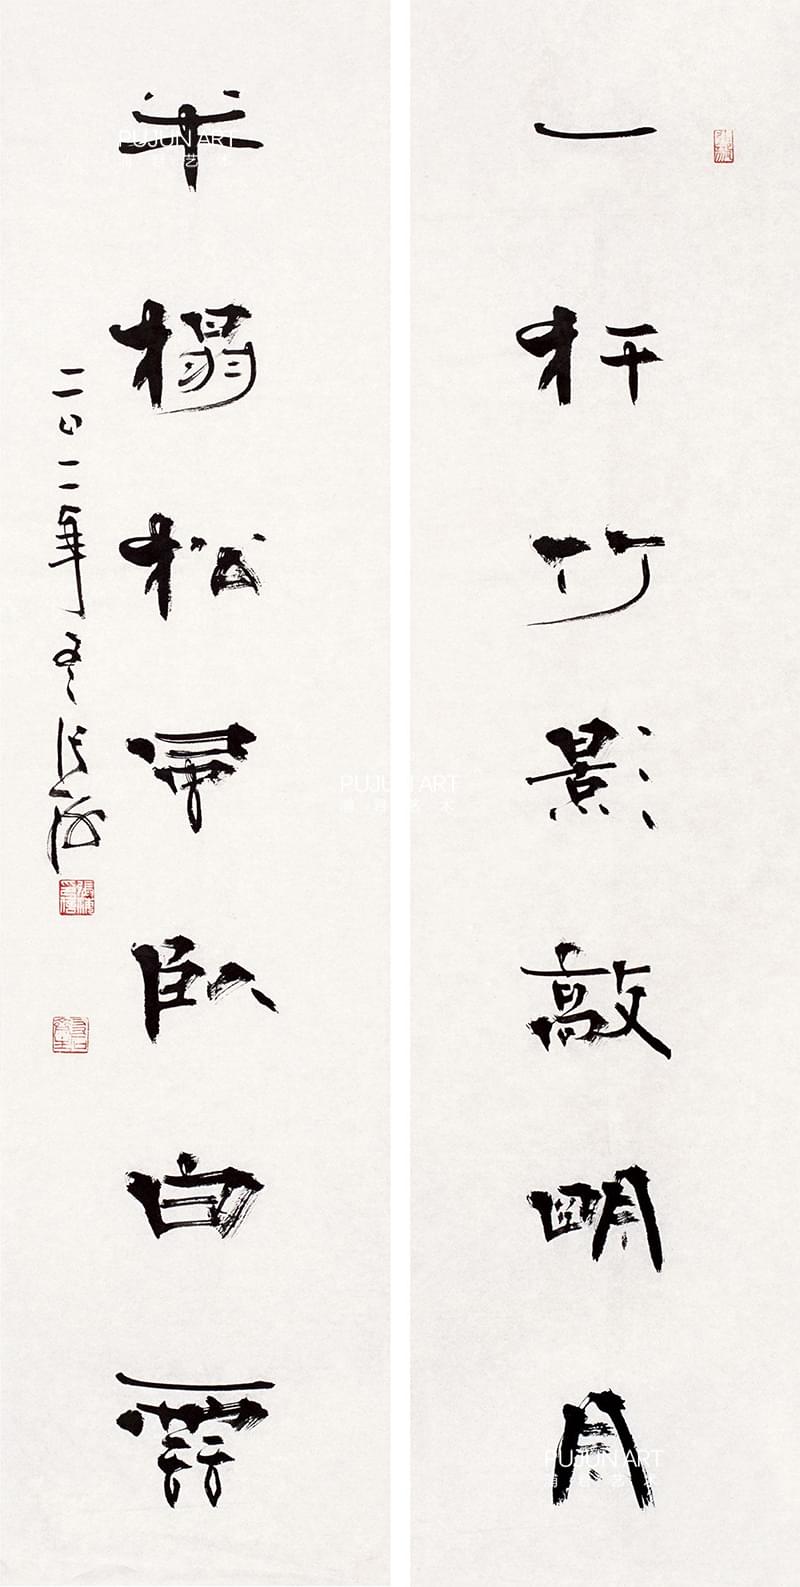 一杆竹影敲明月
半榻松風臥白雲
二〇一一年冬张海
PUJUN ART
PUJUN ART
PUJUN ART